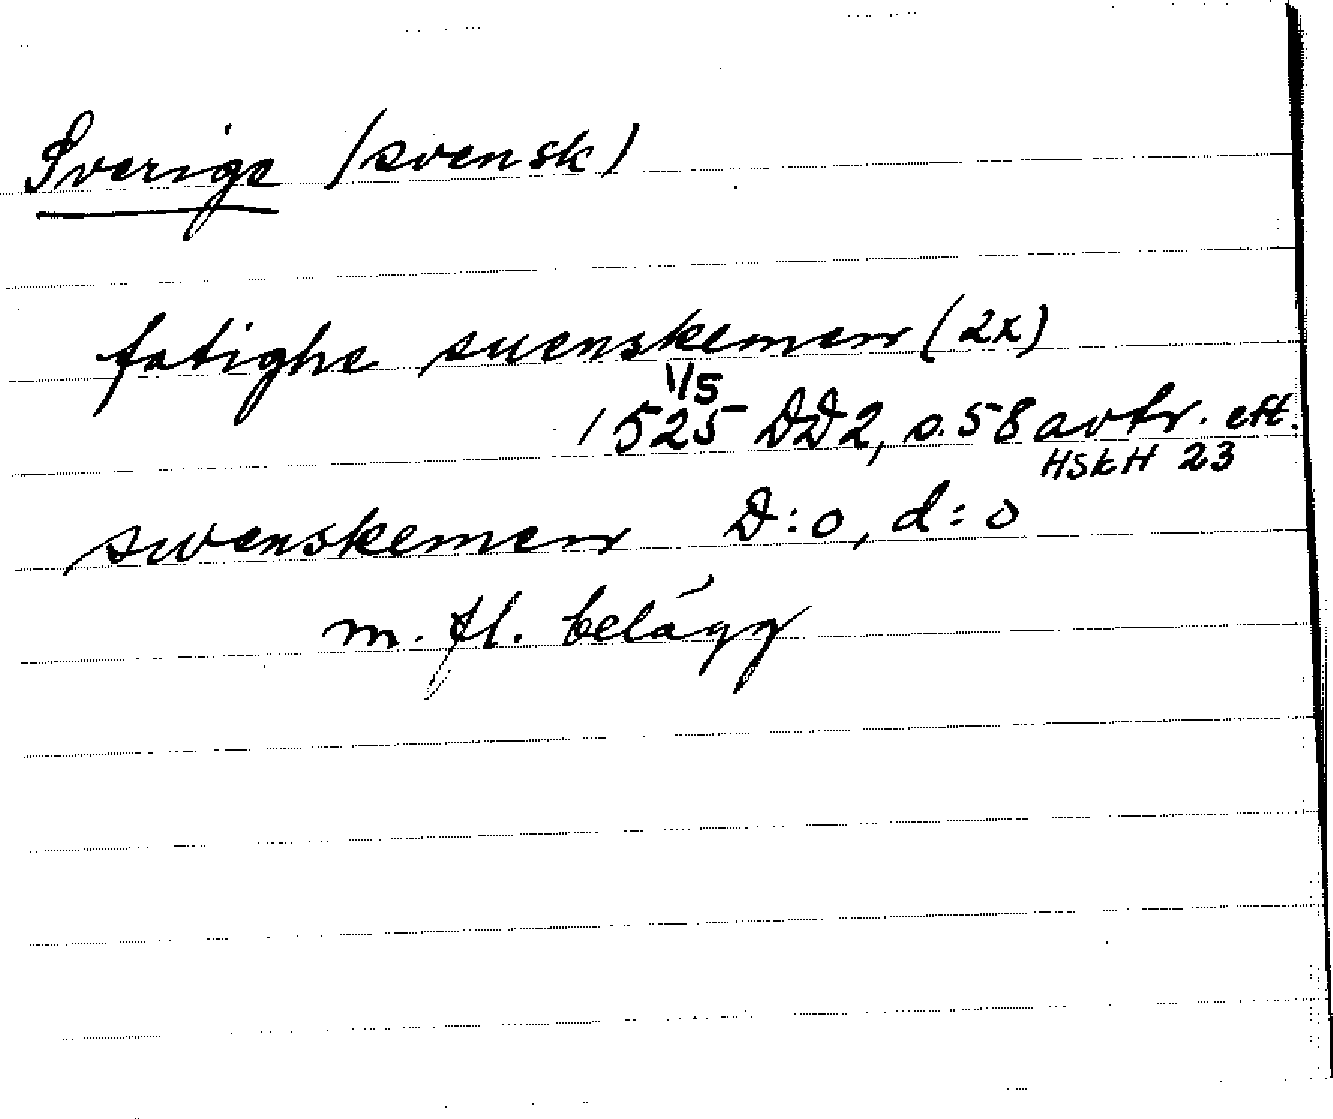 Sverige /svensk/
fatighe suenskemen (2x)
1/5
1525 DD2, s. 58 avtr. eft.
HSkH 23
swenskemen D:o, d:o
m. fl. belägg